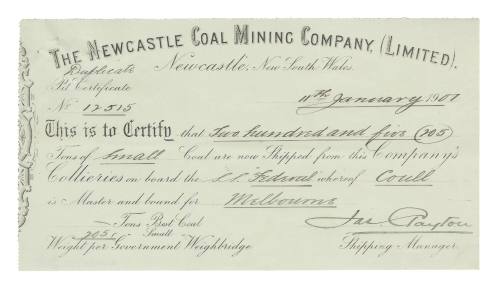 THE NEWCASTLE COAL MINING COMPANY, (LIMITED).
Duplicate Newcastle, New South Wales.
Pit Certificate
No 12515 11th January 1901
This is to Certify that Two hundred and five (205)
Tons of Small Coal are now Shipped from this Company's
Collieries on board the s.s. "Federal" whereof Coull
is Master and bound for Melbourne
— Tons Best Coal
205 " Small "
Weight per Government Weighbridge
Jas. Clayton
Shipping Manager.